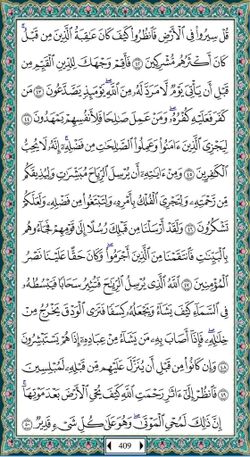 قُلْ سِيرُوا۟ فِى ٱلْأَرْضِ فَٱنظُرُوا۟ كَيْفَ كَانَ عَـٰقِبَةُ ٱلَّذِينَ مِن قَبْلُ ۚ
كَانَ أَكْثَرُهُم مُّشْرِكِينَ ٤٢ فَأَقِمْ وَجْهَكَ لِلدِّينِ ٱلْقَيِّمِ مِن
قَبْلِ أَن يَأْتِىَ يَوْمٌ لَّا مَرَدَّ لَهُۥ مِنَ ٱللَّهِ ۖ يَوْمَئِذٍ يَصَّدَّعُونَ ٤٣ مَن
كَفَرَ فَعَلَيْهِ كُفْرُهُۥ ۖ وَمَنْ عَمِلَ صَـٰلِحًا فَلِأَنفُسِهِمْ يَمْهَدُونَ ٤٤
لِيَجْزِىَ ٱلَّذِينَ ءَامَنُوا۟ وَعَمِلُوا۟ ٱلصَّـٰلِحَـٰتِ مِن فَضْلِهِۦٓ ۚ إِنَّهُۥ لَا يُحِبُّ
ٱلْكَـٰفِرِينَ ٤٥ وَمِنْ ءَايَـٰتِهِۦٓ أَن يُرْسِلَ ٱلرِّيَاحَ مُبَشِّرَٰتٍ وَلِيُذِيقَكُم
مِّن رَّحْمَتِهِۦ وَلِتَجْرِىَ ٱلْفُلْكُ بِأَمْرِهِۦ وَلِتَبْتَغُوا۟ مِن فَضْلِهِۦ وَلَعَلَّكُمْ
تَشْكُرُونَ ٤٦ وَلَقَدْ أَرْسَلْنَا مِن قَبْلِكَ رُسُلًا إِلَىٰ قَوْمِهِمْ فَجَآءُوهُم
بِٱلْبَيِّنَـٰتِ فَٱنتَقَمْنَا مِنَ ٱلَّذِينَ أَجْرَمُوا۟ ۖ وَكَانَ حَقًّا عَلَيْنَا نَصْرُ
ٱلْمُؤْمِنِينَ ٤٧ ٱللَّهُ ٱلَّذِى يُرْسِلُ ٱلرِّيَـٰحَ فَتُثِيرُ سَحَابًا فَيَبْسُطُهُۥ
فِى ٱلسَّمَآءِ كَيْفَ يَشَآءُ وَيَجْعَلُهُۥ كِسَفًا فَتَرَى ٱلْوَدْقَ يَخْرُجُ مِنْ
خِلَـٰلِهِۦ ۖ فَإِذَآ أَصَابَ بِهِۦ مَن يَشَآءُ مِنْ عِبَادِهِۦٓ إِذَا هُمْ يَسْتَبْشِرُونَ
٤٨ وَإِن كَانُوا۟ مِن قَبْلِ أَن يُنَزَّلَ عَلَيْهِم مِّن قَبْلِهِۦ لَمُبْلِسِينَ
٤٩ فَٱنظُرْ إِلَىٰٓ ءَاثَـٰرِ رَحْمَتِ ٱللَّهِ كَيْفَ يُحْىِ ٱلْأَرْضَ بَعْدَ مَوْتِهَآ ۚ
إِنَّ ذَٰلِكَ لَمُحْىِ ٱلْمَوْتَىٰ ۖ وَهُوَ عَلَىٰ كُلِّ شَىْءٍ قَدِيرٌ ٥٠
409